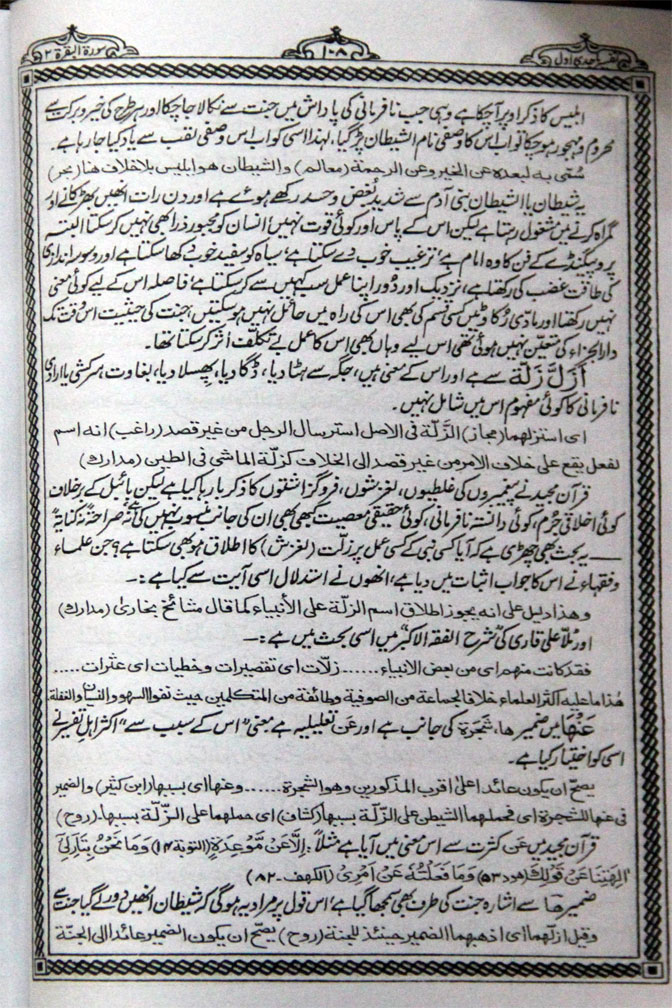 تفسیر ماجدی اول
۱۰۸
سورۃ البقرۃ ۲
ابلیس کا ذکر اوپر آچکا ہے وہی جب نافرمانی کی پاداش میں جنت سے نکالا جاچکا اور ہر طرح کی خیر و برکت سے
محروم و مہجور ہوچکا تو اب اس کا وصفی نام الشیطان پڑگیا، لہٰذا اسی کو اب اس وصفی لقب سے یاد کیا جارہا ہے۔
سُمّی بہ لبعدہ عن الخیر وعن الرحمة (معالم) والشیطان ھو ابلیس بلاخلاف ھنا (بحر)
یہ شیطان یا الشیطان بنی آدم سے شدید بُغض و حسد رکھے ہوئے ہے اور دن رات انھیں بھڑکانے اور
گمراہ کرنے میں مشغول رہتا ہے لیکن اس کے پاس اور کوئی قوت نہیں، انسان کو مجبور ذرا بھی نہیں کرسکتا البتہ
پروپیگنڈے کے فن کا وہ امام ہے، ترغیب خوب دے سکتا ہے، سیاہ کو سفید خوب دکھا سکتا ہے اور وسوسہ اندازی
کی طاقت غضب کی رکھتا ہے، نزدیک اور دُور اپنا عمل سب کہیں سے کرسکتا ہے، فاصلہ اس کے لیے کوئی معنی
نہیں رکھتا اور مادّی رُکاوٹیں کسی قسم کی بھی اس کی راہ میں حائل نہیں ہوسکتیں، جنت کی حیثیت اس وقت تک
دارالجزاء کی متعین نہیں ہوئی تھی اس لیے وہاں بھی اس کا عمل بے تکلف اثر کرسکتا تھا۔
اَزَلَّ زَلَّة سے ہے اور اس کے معنی ہیں، جگہ سے ہٹا دیا، ڈگا دیا، پھسلا دیا، بغاوت، سرکشی یا ارادی
نافرمانی کا کوئی مفہوم اس میں شامل نہیں۔
ای استزلھما (مجاز) الزّلة فی الاصل استرسال الرجل من غیر قصد (راغب) انہ اسم
لفعل یقع علی خلاف الامر من غیر قصد الی الخلاف کزلّة الماشی فی الطین (مدارک)
قرآن مجید نے پیغمبروں کی غلطیوں، لغزشوں، فروگزاشتوں کا ذکر بارہا کیا ہے لیکن بائبل کے برخلاف
کوئی اخلاقی جُرم، کوئی دانستہ نافرمانی، کوئی حقیقی معصیت کبھی بھی ان کی جانب منسوب نہیں کی نہ صراحتہً نہ کنایۃً
— یہ بحث بھی چھڑی ہے کہ آیا کسی نبی کے کسی عمل پر زلّت (لغزش) کا اطلاق ہو بھی سکتا ہے؟ جن علماء
و فقہاء نے اس کا جواب اثبات میں دیا ہے، انھوں نے استدلال اسی آیت سے کیا ہے:۔
وھٰذا دلیل علی انہ یجوز اطلاق اسم الزلّة علی الأنبیاء کما قال مشائخ بخاری (مدارک)
اور ملّا علی قاری کی شرح الفقہ الاکبر میں اسی بحث میں ہے:۔
فقد کانت منھم ای من بعض الانبیاء ...... زلّات ای تقصیرات وخطیات ای عثرات .....
ھٰذا ما علیہ أکثر العلماء خلافا لجماعة من الصوفیة وطائفة من المتکلمین حیث نفوا السھو والنسیان والغفلة
عَنْهَا میں ضمیر ھا، شجرۃ کی جانب ہے اور عَن تعلیلیہ ہے بمعنی "اس کے سبب سے" اکثر اہل تفسیر نے
اسی کو اختیار کیا ہے۔
یصحّ ان یکون عائدا علی اقرب المذکورین وھو الشجرة ....... وعنھا ای بسببھا (ابن کثیر) والضمیر
فی عنھا للشجرة ای فحملھما الشیطن علی الزلّة بسببھا (کشاف) ای حملھما علی الزلّة بسببھا۔ (روح)
قرآن مجید میں عَن کثرت سے اس معنی میں آیا ہے مثلاً: اِلَّا عَنْ مَّوْعِدَةٍ (التوبة ۱۴) وَمَا نَحْنُ بِتَارِکِیْ
اٰلِھَتِنَا عَنْ قَوْلِكَ (ھود ۵۳) وَمَا فَعَلْتُهٗ عَنْ اَمْرِیْ (الکھف۔۸۲)
ضمیر ھا سے اشارہ جنت کی طرف بھی سمجھا گیا ہے، اس قول پر مراد یہ ہوگی کہ شیطان انھیں دور لے گیا جنت سے
وقیل ازلّھما ای اذھبھما الضمیر حینئذ للجنة (روح) یصحّ ان یکون الضمیر عائدا الی الجنّة